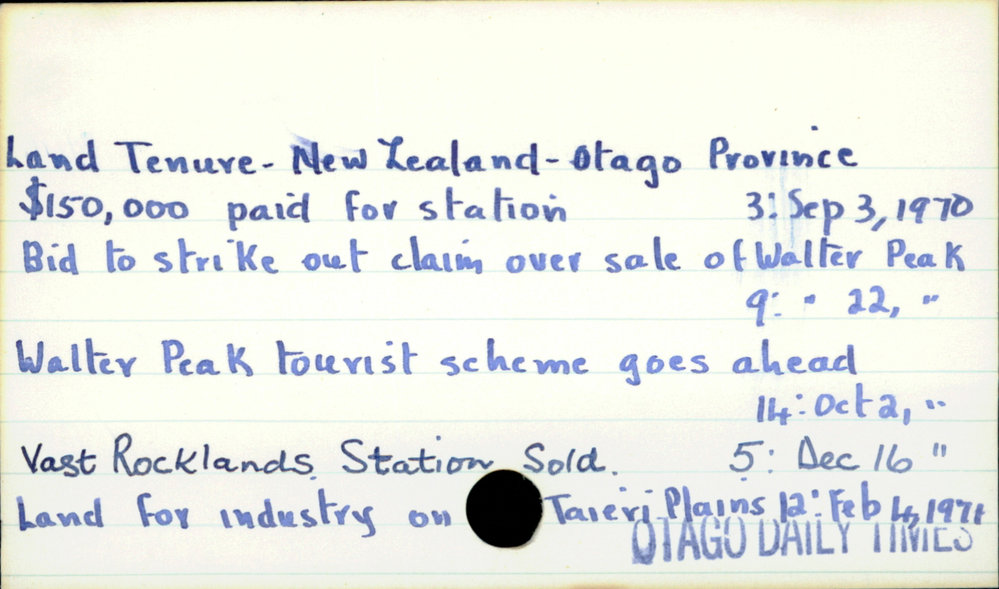 Land Tenure - New Zealand - Otago Province
$150,000 paid for station 3: Sep 3, 1970
Bid to strike out claim over sale of Walter Peak
9: " 22, "
Walter Peak tourist scheme goes ahead
14: Oct 2, "
Vast Rocklands Station Sold. 5: Dec 16 "
Land for industry on Taieri Plains 12: Feb 4, 1971
OTAGO DAILY TIMES